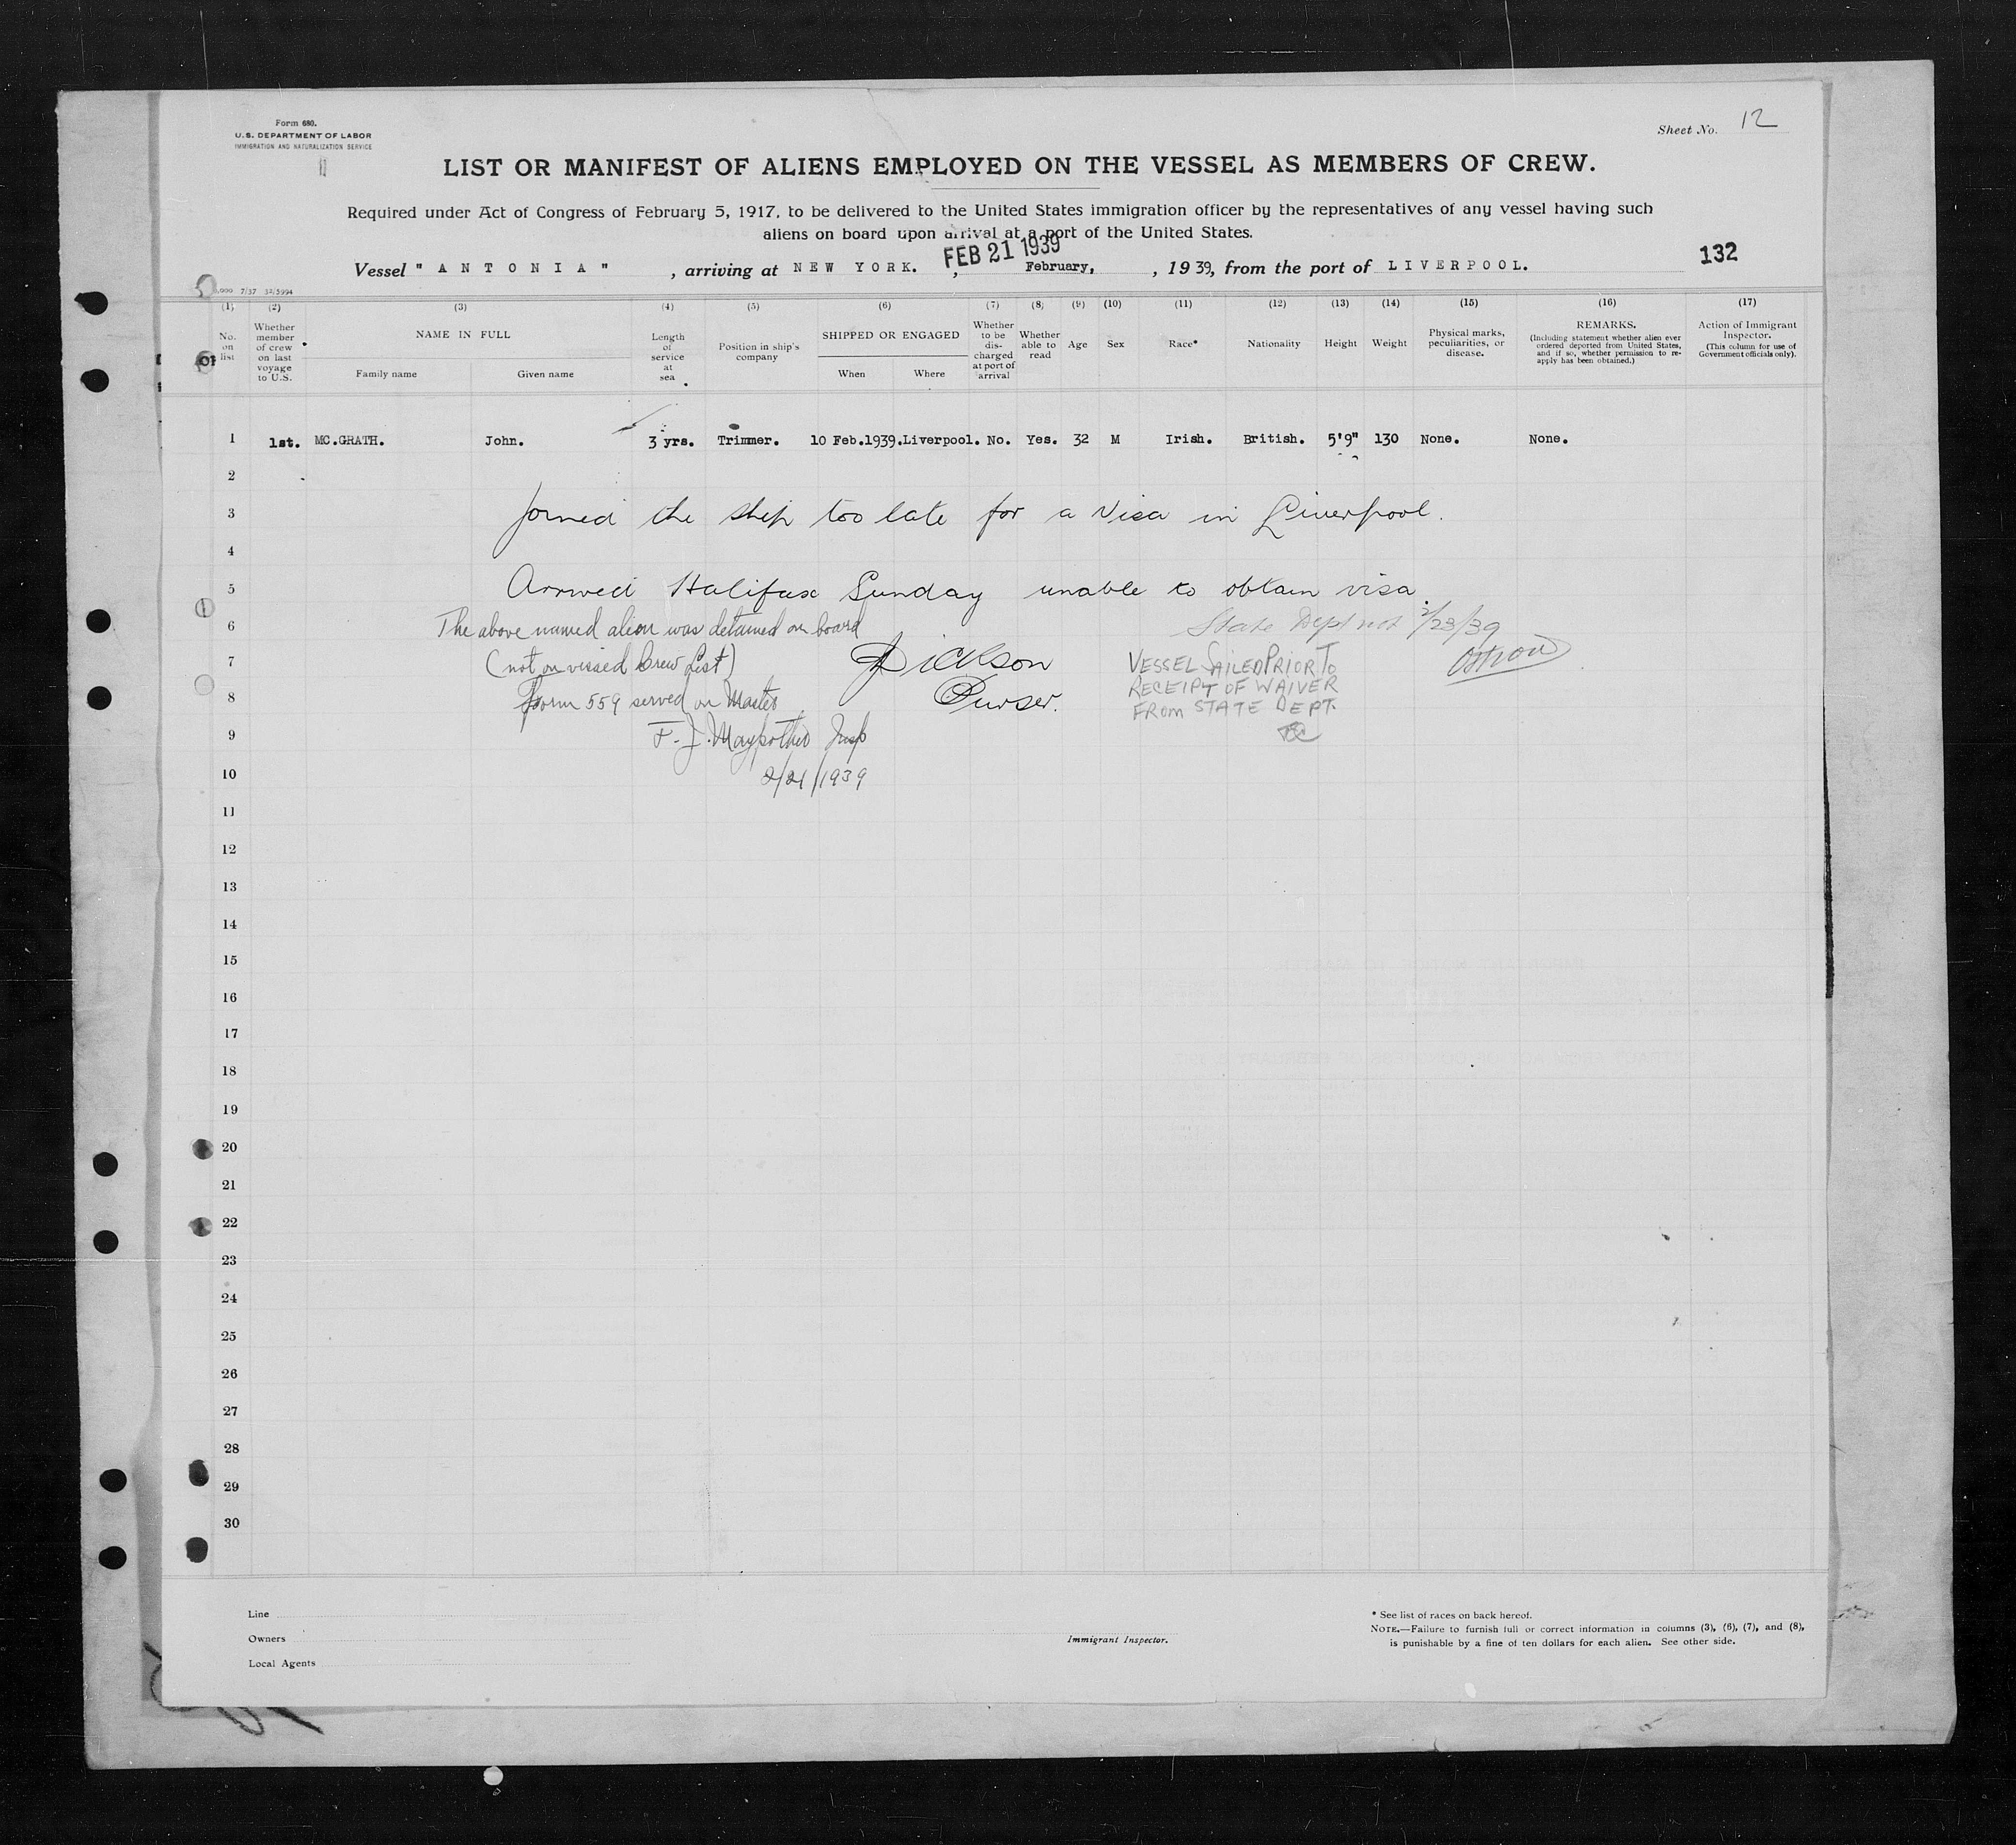 Form 680.
U.S. DEPARTMENT OF LABOR
IMMIGRATION AND NATURALIZATION SERVICE
Sheet No. 12
LIST OR MANIFEST OF ALIENS EMPLOYED ON THE VESSEL AS MEMBERS OF CREW.
Required under Act of Congress of February 5, 1917, to be delivered to the United States immigration officer by the representatives of any vessel having such
aliens on board upon arrival at a port of the United States.
FEB 21 1939
Vessel "ANTONIA", arriving at NEW YORK., February,, 1939, from the port of LIVERPOOL.
132
7/37 32/5994
(1) (2) (3) (4) (5) (6) (7) (8) (9) (10) (11) (12) (13) (14) (15) (16) (17)
No. on list
Whether member of crew on last voyage to U.S.
NAME IN FULL
Family name
Given name
Length of service at sea
Position in ship's company
SHIPPED OR ENGAGED
When
Where
Whether to be discharged at port of arrival
Whether able to read
Age
Sex
Race*
Nationality
Height
Weight
Physical marks, peculiarities, or disease.
REMARKS.
(Including statement whether alien ever ordered deported from United States, and if so, whether permission to reapply has been obtained.)
Action of Immigrant Inspector.
(This column for use of Government officials only).
1 1st. MC.GRATH. John. 3 yrs. Trimmer. 10 Feb.1939. Liverpool. No. Yes. 32 M Irish. British. 5'9" 130 None. None.
2
3 Joined the ship too late for a Visa in Liverpool.
4
5 Arrived Halifax Sunday unable to obtain visa.
6 The above named alien was detained on board
State Dept not 2/23/39
7 (not on visaed Crew List)
Dickson
VESSEL SAILED PRIOR TO
8 Form 559 served on Master
Purser.
RECEIPT OF WAIVER
FROM STATE DEPT.
9 F. J. Maypother Insp
10 2/21/1939
11
12
13
14
15
16
17
18
19
20
21
22
23
24
25
26
27
28
29
30
Line
Owners
Local Agents
Immigrant Inspector.
* See list of races on back hereof.
NOTE.—Failure to furnish full or correct information in columns (3), (6), (7), and (8),
is punishable by a fine of ten dollars for each alien. See other side.